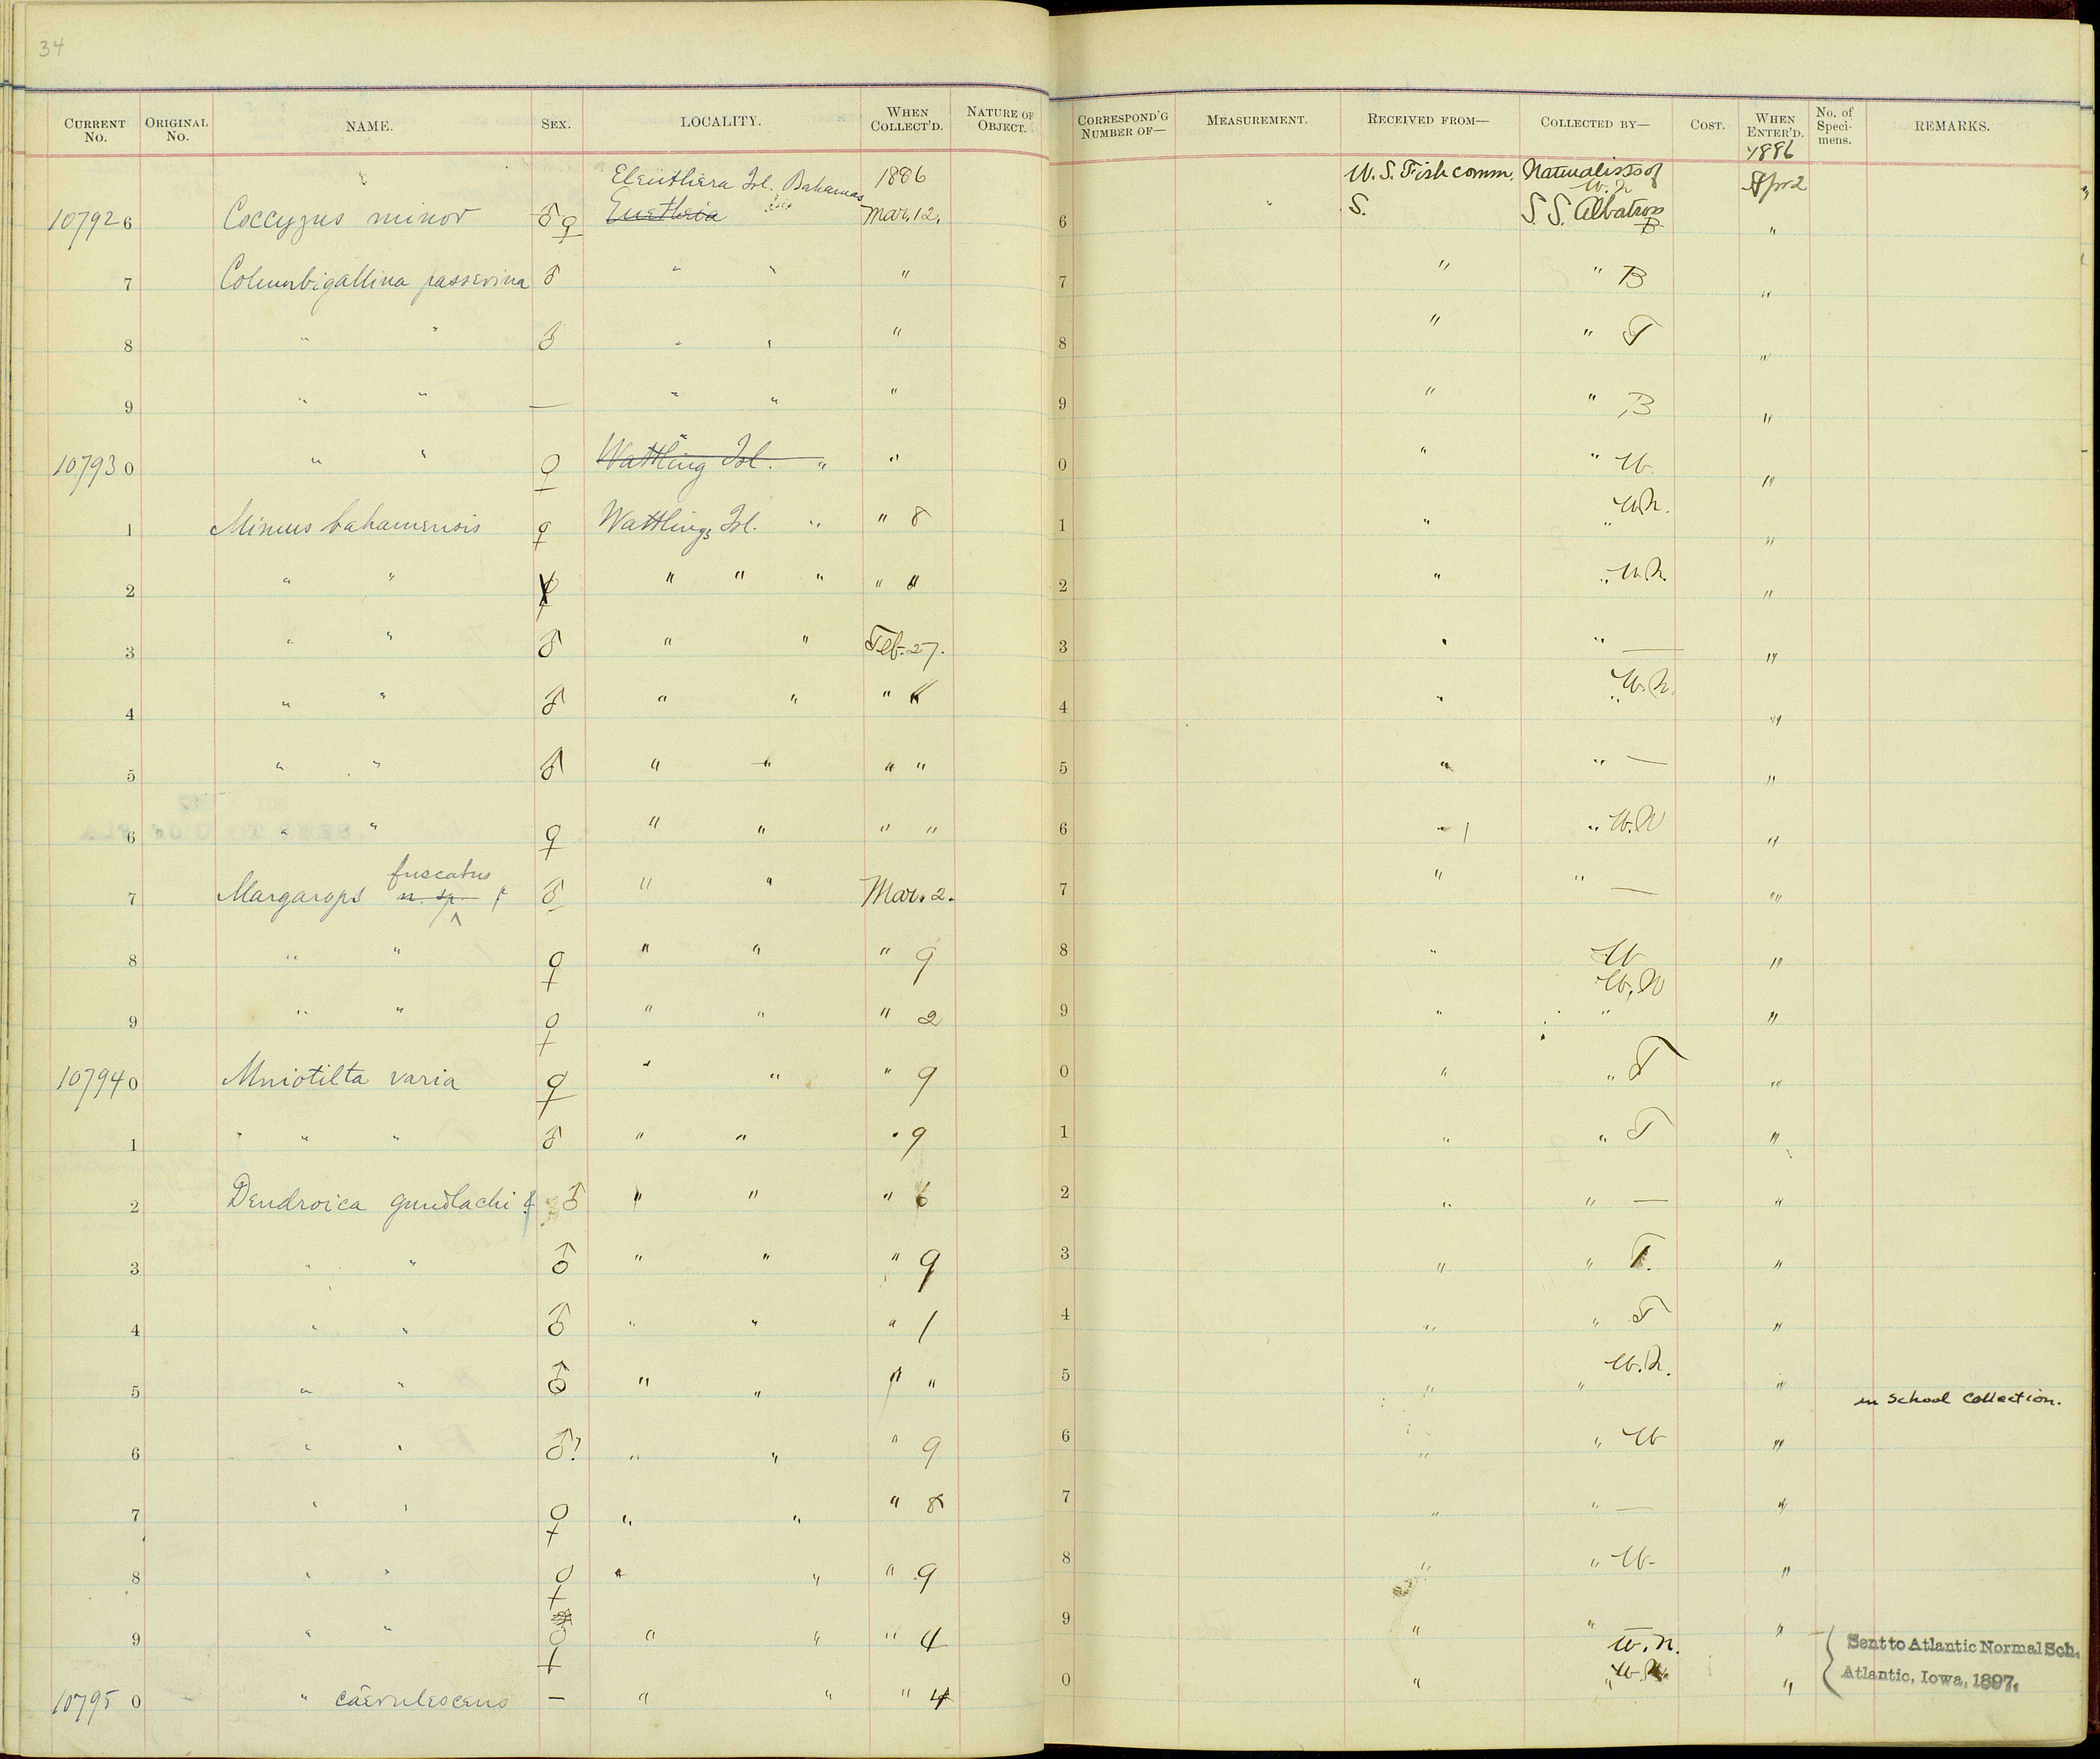 34
CURRENT No. ORIGINAL No. NAME. SEX. LOCALITY. WHEN COLLECT'D. NATURE OF OBJECT. CORRESPOND'G NUMBER OF— MEASUREMENT. RECEIVED FROM— COLLECTED BY— COST. WHEN ENTER'D. No. of Speci-mens. REMARKS.
1886
Eleuthera Isl. Bahamas 1886 U.S. Fish comm. Naturalists of Apr 2
W. N
107926 Coccyzus minor ♂ ♀ Mar. 12. 6 S. S.S. Albatross B "
7 Columbigallina passerina ♂ " " " 7 " " B "
8 " " ♂ " " " 8 " " T "
9 " " — " " " 9 " " B "
107930 " " ♀ Wattling Isl. " " 0 " " W. "
1 Mimus bahamensis ♀ Wattlings Isl. " " 8 1 " " W.N. "
2 " " " " " " " 2 " " W.N. "
3 " " ♂ " " Feb. 27. 3 " " — "
4 " " ♂ " " " 4 " " W.N. "
5 " " ♂ " " " " 5 " " — "
6 " " ♀ " " " " 6 " " W.N "
fuscatus
7 Margarops n. sp. ♂ " " Mar. 2. 7 " " — "
8 " " ♀ " " " 9 8 " W "
9 " " ♀ " " " 2 9 " " W.N "
107940 Mniotilta varia ♀ " " " 9 0 " " T "
1 " " ♂ " " " 9 1 " " T "
2 Dendroica gundlachi ♂ " " " 6 2 " " — "
3 " " ♂ " " " 9 3 " " T. "
4 " " ♂ " " " 1 4 " " T "
5 " " ♂ " " " " 5 " " W.N. " in School Collection.
6 " " ♂? " " " 9 6 " " W "
7 " " ♀ " " " 8 7 " " — "
8 " " ♀ " " " 9 8 " " W- "
9 " " ♀ " " " 4 9 " " W.N. " Sent to Atlantic Normal Sch.
107950 " caerulescens — " " " 4 0 " " W.N. " Atlantic, Iowa, 1897.